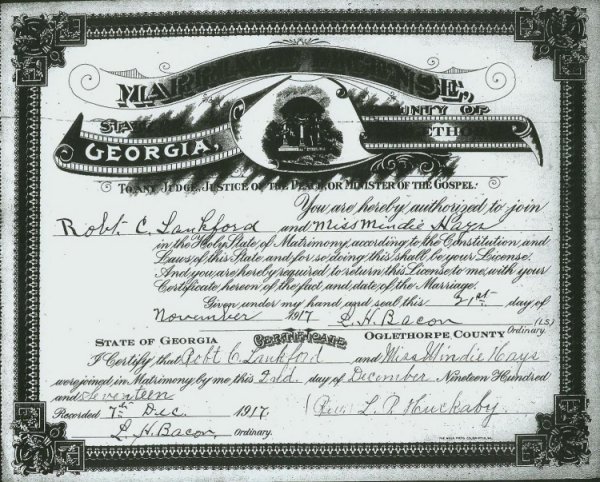 MARRIAGE LICENSE,
STATE COUNTY OF
GEORGIA, OGLETHORPE
TO ANY JUDGE, JUSTICE OF THE PEACE, OR MINISTER OF THE GOSPEL:
You are hereby authorized to join
Robt. C. Lankford and Miss Mindie Hays
in the Holy State of Matrimony, according to the Constitution and
Laws of this State and for so doing this shall be your License.
And you are hereby required to return this License to me, with your
Certificate hereon of the fact and date of the Marriage.
Given under my hand and seal, this 21st day of
November 1917 L. H. Bacon (LS)
Ordinary.
STATE OF GEORGIA CERTIFICATE OGLETHORPE COUNTY
I Certify that Robt C. Lankford and Miss Mindie Hays
were joined in Matrimony by me this 2nd. day of December Nineteen Hundred
and Seventeen
Recorded 7th Dec. 1917. (Rev.) L. P. Huckaby
L. H. Bacon, Ordinary.